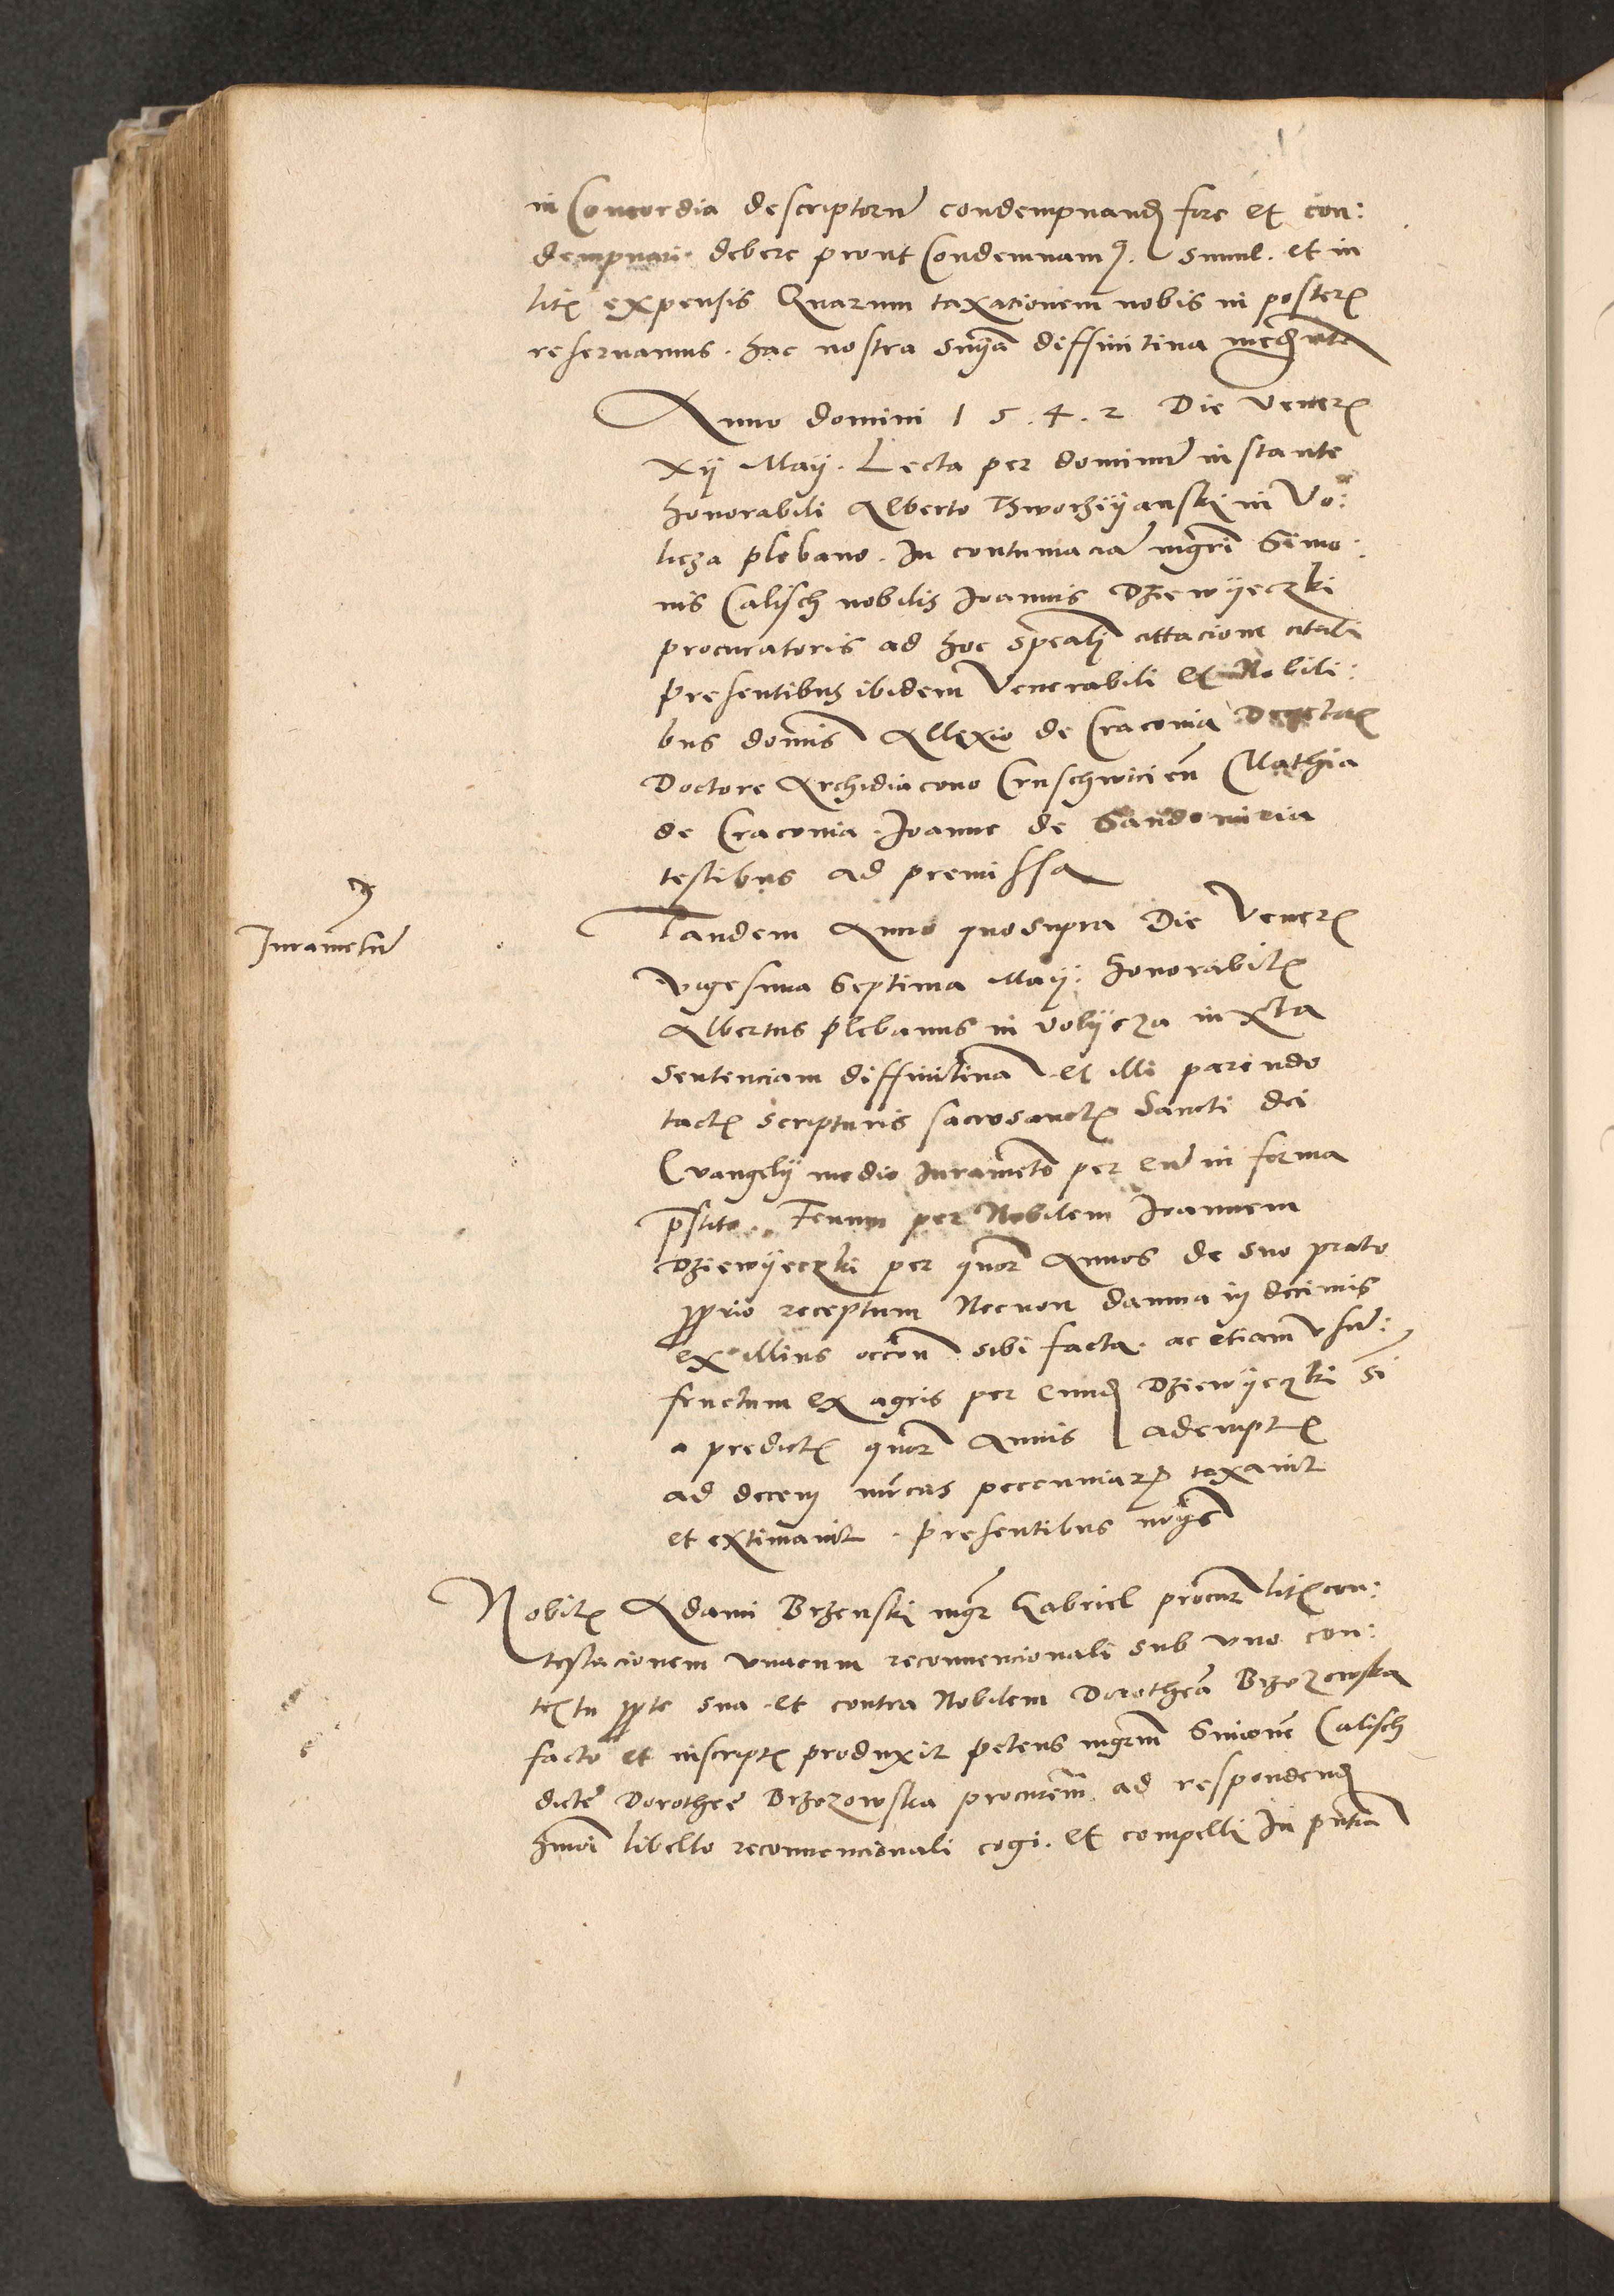 in Concordia descriptorũ condempnand fore et con:
dempnari debere prout Condemnamꝰ. Simul. et in
litꝭ expensis Quarum taxationem nobis in posterꝭ
reservamus. hac nostra snÿa diffinitiva mediante
Anno domini 1 5. 4. 2 Die venerꝭ
xij Maij. Lecta per dominũ instante
honorabili Alberto Thworzÿanski in Vo:
licza plebano. In contumaciã mgri Simo:
nis Calisch nobilis Joannis Dziewÿeczki
procuratoris ad hoc specali cittacione citati
presentibus ibidem Venerabili et Nobili:
bus domis Allexio de Cracovia Decretaꝝ
Doctore Archidiacono Cruschwicien Mathia
de Cracovia. Joanne de Sandomiria
testibus ad premissa
Juramẽtũ
Tandem Anno quosupra Die Venerꝭ
vigesima Septima Maij. honorabilꝭ
Albertus plebanus in volÿcza iuxta
Sentenciam diffinitivã et illi parendo
tactꝭ scripturis sacrosanctꝭ Sancti dei
Evangelij medio Juramẽto per eũ in forma
p̃stito. Fenum per Nobilem Joannem
Dziewÿeczki per quor Annos de suo prato
ꝓprio receptum Necnon damna in decimis
ex illius occon sibi facta. ac etiam vsũ:
fructum ex agris per eund Dziewÿeczki Si
a predictꝭ quor Annis ademptꝭ
ad decem mrcas peccuniaꝝ taxavit
et extimavit. presentibus
Nobilꝭ Adami Brzenski mgr Gabriel procur litꝭ con:
testacionem vnacum reconvencionali sub vno con:
textu ꝓ pte sua et contra Nobilem Dorotheã Brzozowska
facto et inscriptꝭ produxit petens mgrm Simonẽ Calisch
dicte Dorothee Brzozowska procurem ad respondend
hmoi libello reconvencionali cogi. et compelli In pntia